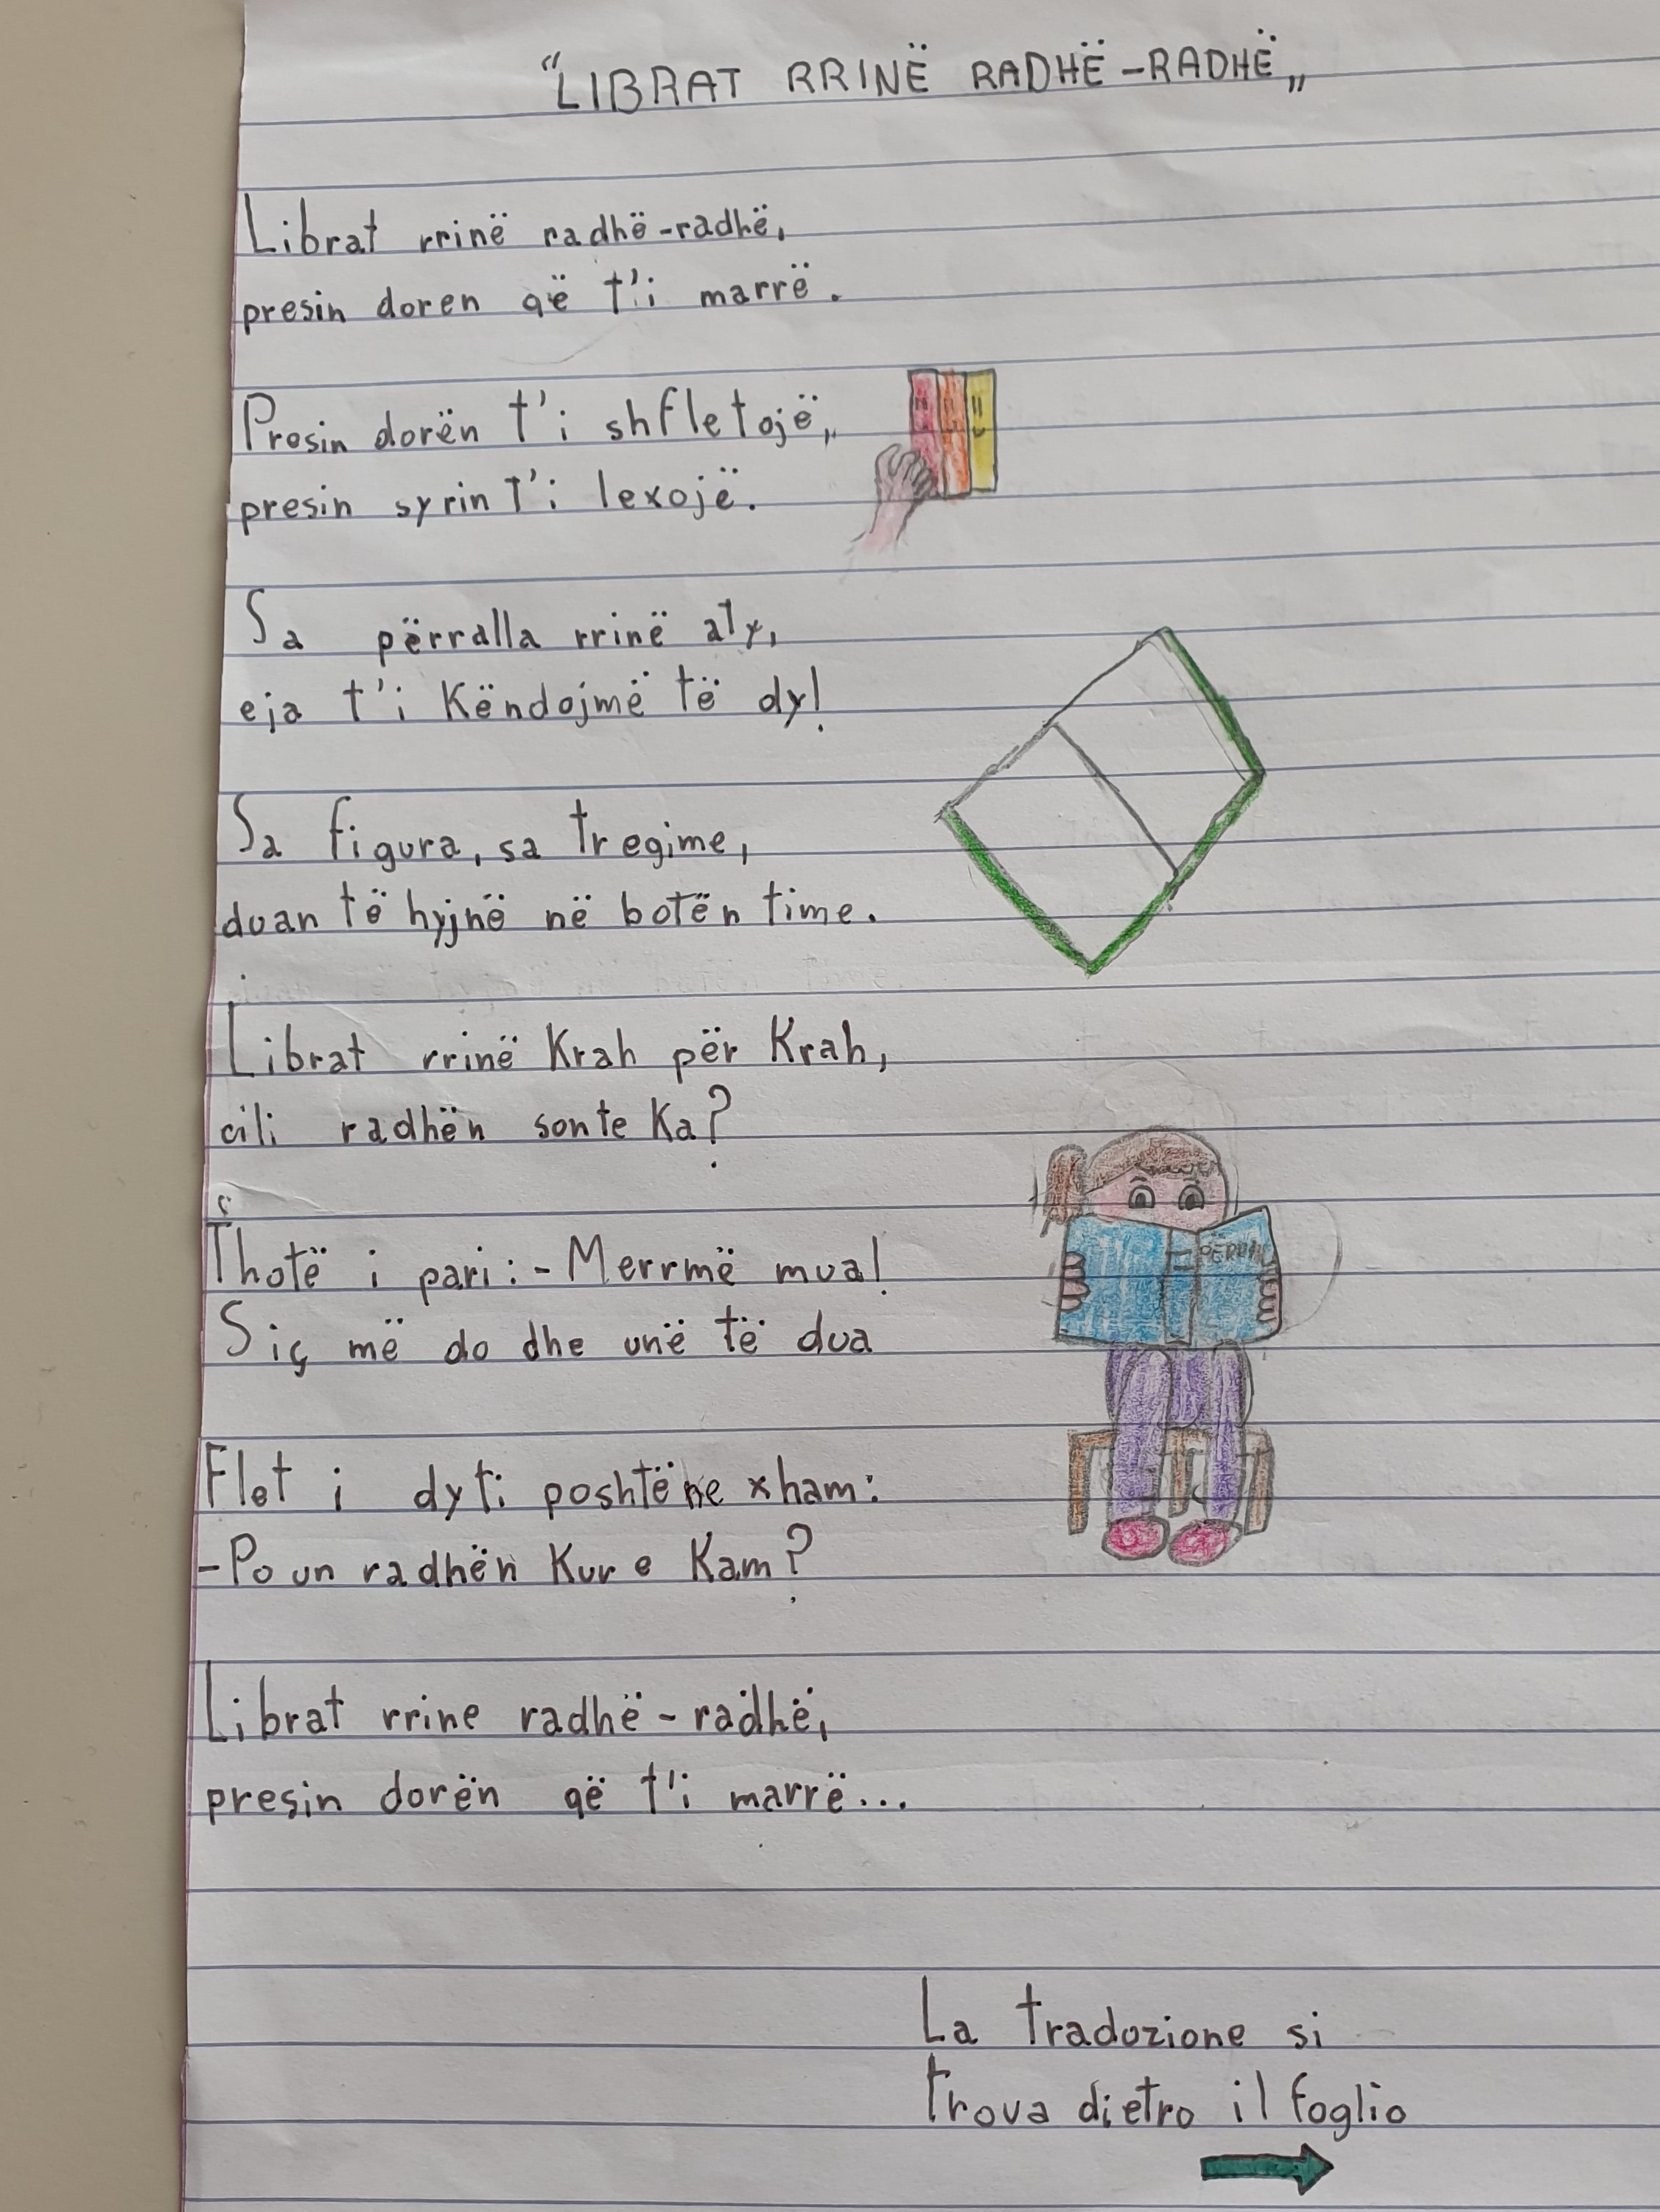 “LIBRAT RRINË RADHË-RADHË„
Librat rrinë radhë-radhë,
presin doren që t'i marrë.
Presin dorën t'i shfletojë,
presin syrin t'i lexojë.
Sa përralla rrinë aty,
eja t'i Këndojmë të dy!
Sa figura, sa tregime,
duan të hyjnë në botën time.
Librat rrinë Krah për Krah,
cili radhën sonte Ka?
Thotë i pari:- Merrmë mua!
Siç më do dhe unë të dua
Flet i dyti poshtë ne xham:
-Po un radhën Kur e Kam?
Librat rrine radhë-radhë,
presin dorën që t'i marrë...
La traduzione si
trova dietro il foglio